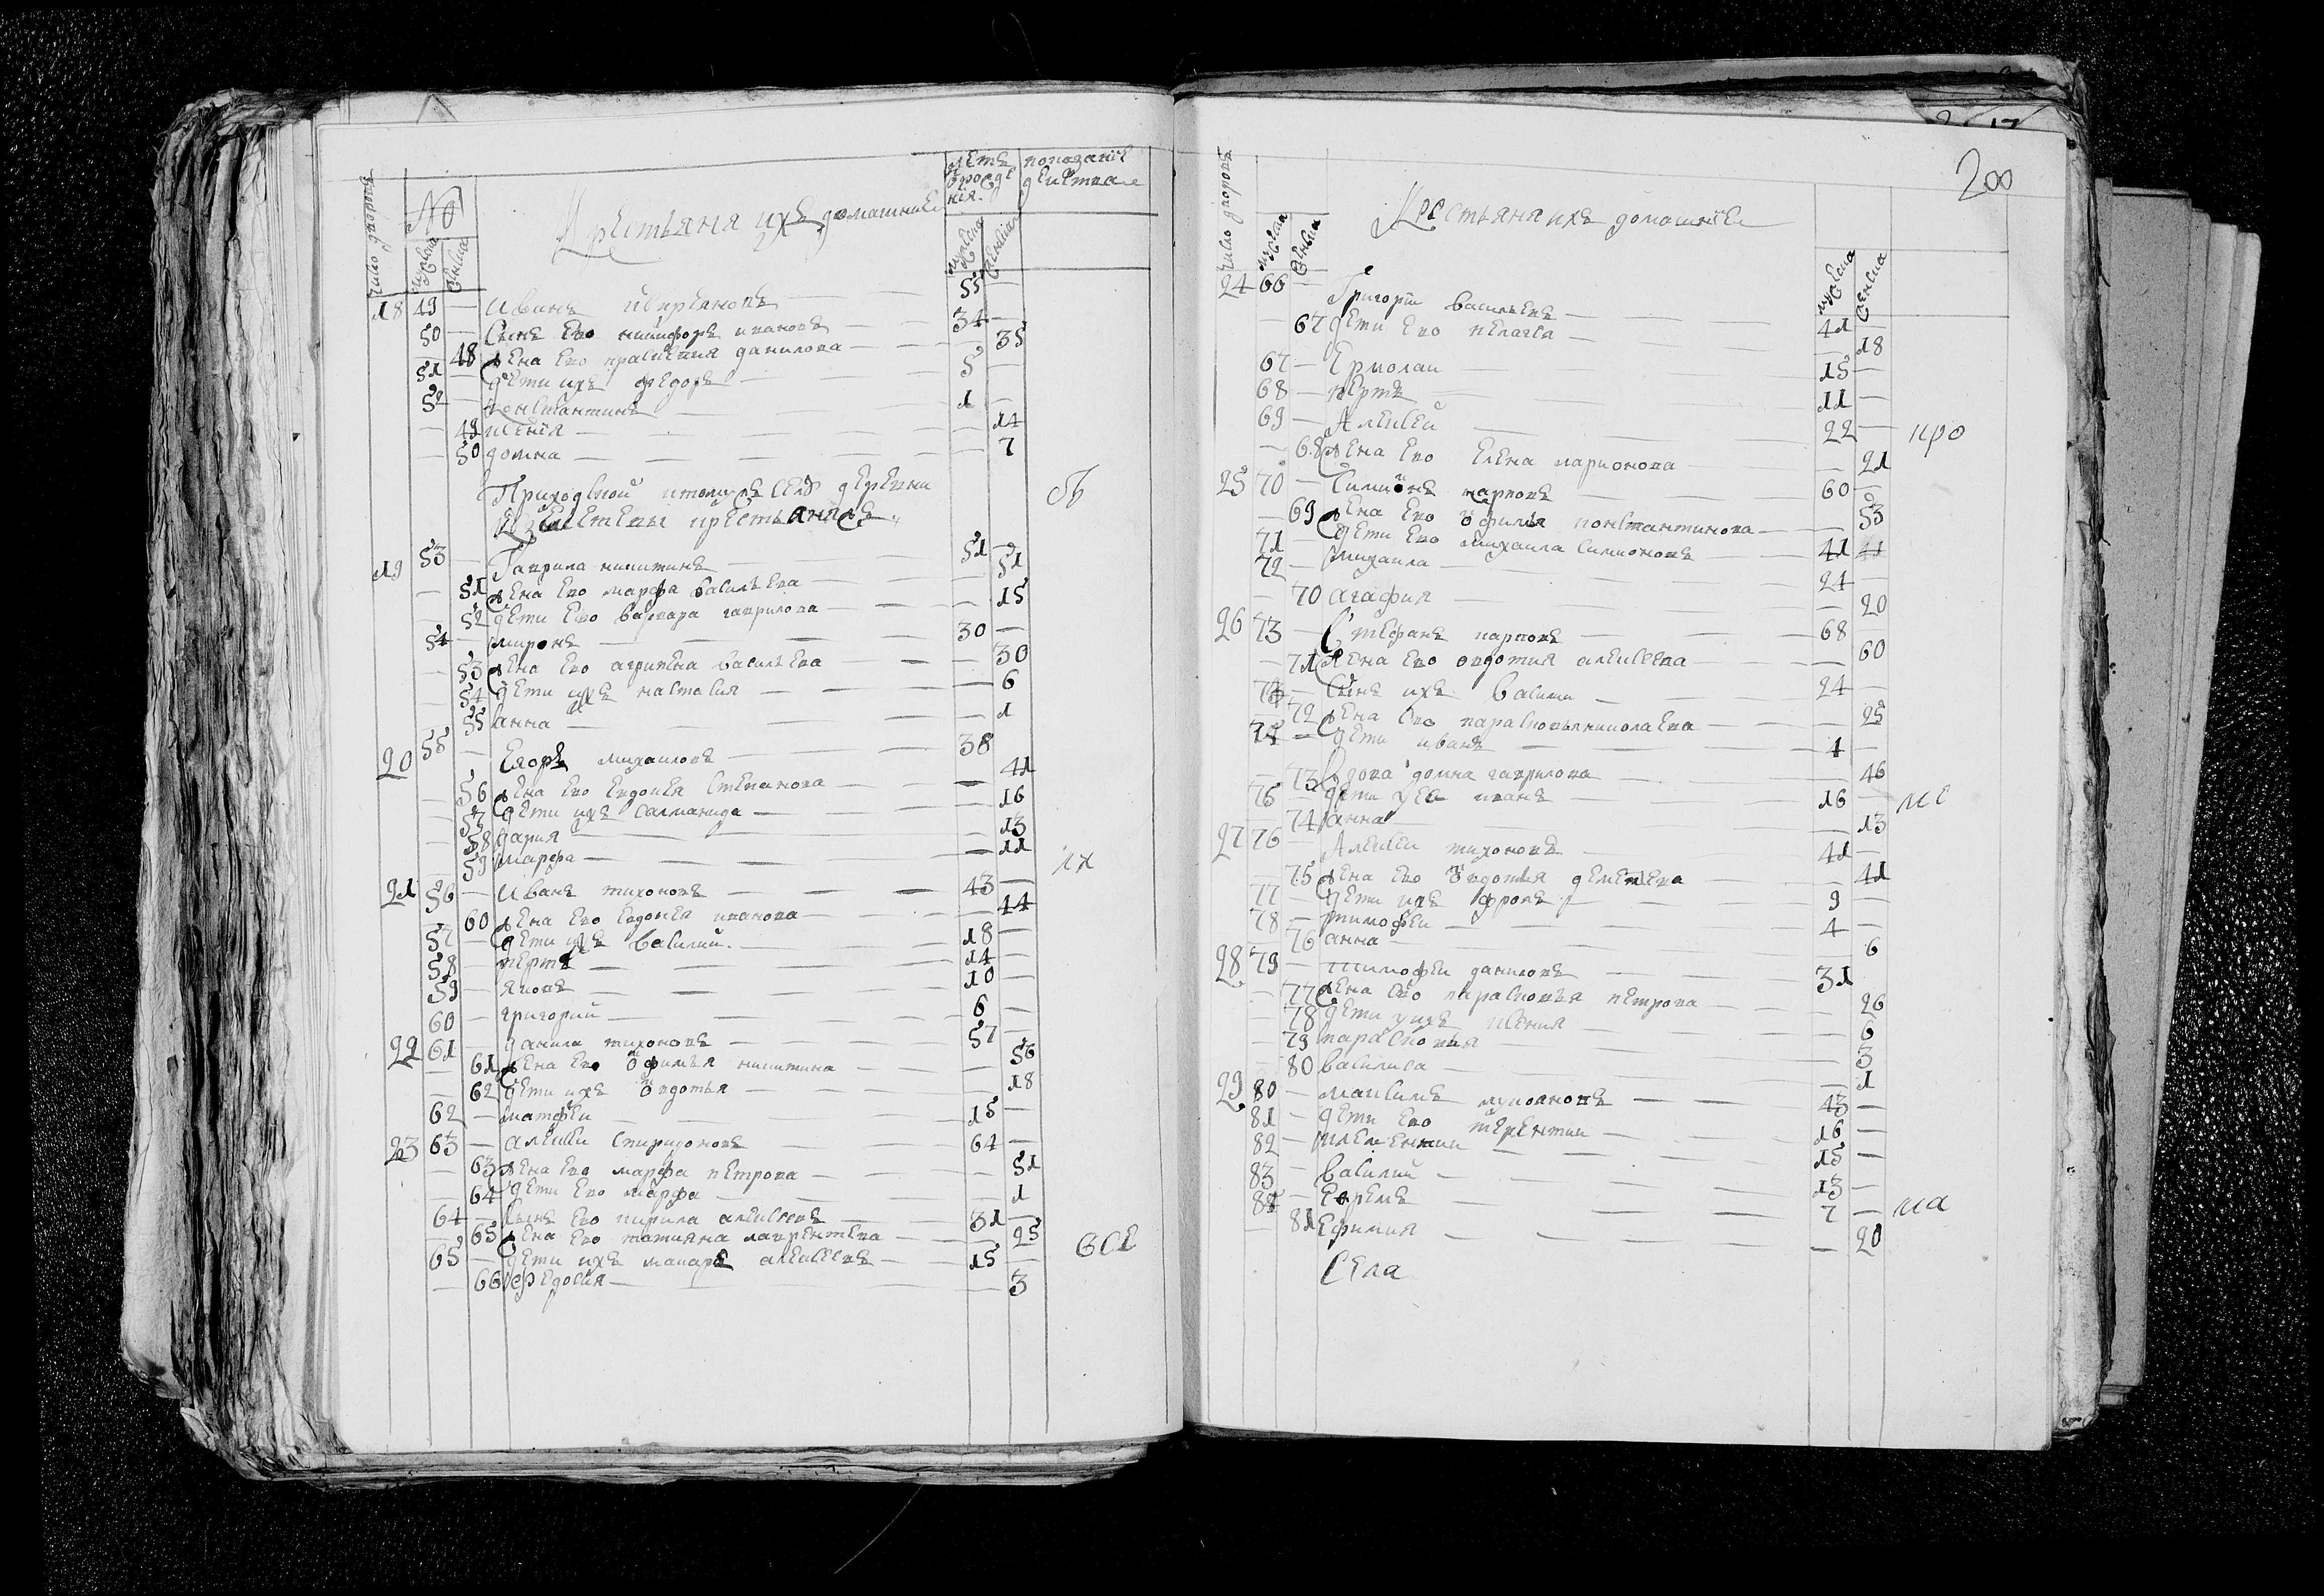 число дворовъ
№
мужеска
женска
Крестьяна ихъ домашние
летъ от рожде ния.
мужеска
женска
показание действа
18 49 — Иванъ — 55 —
50 — Сынъ Ево никифоръ ивановъ — 34 —
— 48 жена Ево прасковия данилова — 35
51 — дети ихъ федоръ — 5 —
52 — констянтинъ — 1 —
— 49 ксения — 14
— 50 домна — 7
Приходской деревни
крестьянъ
19 53 — Гаврила никитинъ — 51 —
— 51 жена Ево марфа василъева — 51
— 52 дети Ево варвара гаврилова — 15
54 — миронъ — 30 —
— 53 жена Ево агрипена василъева — 30
— 54 дети ихъ настасия — 6
— 55 анна — 1
20 55 — Егоръ михаиловъ — 38
— 56 жена Ево Евдокея Степанова — 41
— 57 дети ихъ саламанида — 16
— 58 дария — 13
— 59 марфа — 11
ихъ
21 56 — Иванъ тихоновъ — 43 —
60 жена Ево Евдокея иванова — 44
57 — дети ихъ василий — 18 —
58 — петръ — 14 —
59 — яковъ — 10 —
60 — григорий — 6 —
22 61 — данила тихоновъ — 57 —
— 61 жена Ево офимья никитина — 56
— 62 дети ихъ овдотья — 18
62 — матфеи — 15 —
23 63 — алексеи спиридоновъ — 64 —
— 63 жена Ево марфа петрова — 51
— 64 дети Ево марфа — 1
64 — сынъ Ево кирила алексеевъ — 31 —
— 65 жена Ево татияна лаврентева — 25
65 — дети ихъ макаръ алексеевъ — 15 —
— 66 федосия — 3
все
200
число дворовъ
мужеска
женска
Крестьяна ихъ домашние
мужеска
женска
24 66 — Григории василъевъ — 41 —
— 67 дети Ево пелагея — 18
67 — Ермолаи — 15 —
68 — петръ — 11 —
69 — Алексей — 22 —
— 68 жена Ево Елена ларионова — 21
про
25 70 — Симионъ карповъ — 60 —
— 69 жена Ево офимья константинова — 53
71 — дети Ево михаила симионовъ — 41
72 — михаила — 24 —
— 70 агафия — 20
26 73 — Стефанъ карповъ — 68
— 71 жена Ево овдотия алексеева — 60
74 — сынъ ихъ васили — 24 —
— 72 жена Ево парасковья николаева — 25
— дети иванъ — 4 —
— 73 вдова домна гаврилова — 46
75 — дети у Ея иванъ — 16 —
— 74 анна — 13
27 76 — Алексеи тихоновъ — 41 —
— 75 жена Ево овдотья дементева — 41
77 — дети ихъ фролъ — 9 —
78 — тимофеи — 4 —
76 анна — 6
28 79 — Тимофеи даниловъ — 31
— 77 жена Ево парасковья петрова — 26
— 78 дети у ихъ ксения — 6
— 79 парасковья — 3
— 80 василиса — 1
29 80 — максимъ — 43 —
81 — дети Ево терентии — 16 —
82 — клементии — 15 —
83 — василий — 13 —
84 — Ефремъ — 7 —
— 81 Ефимия — 20
ка
Села